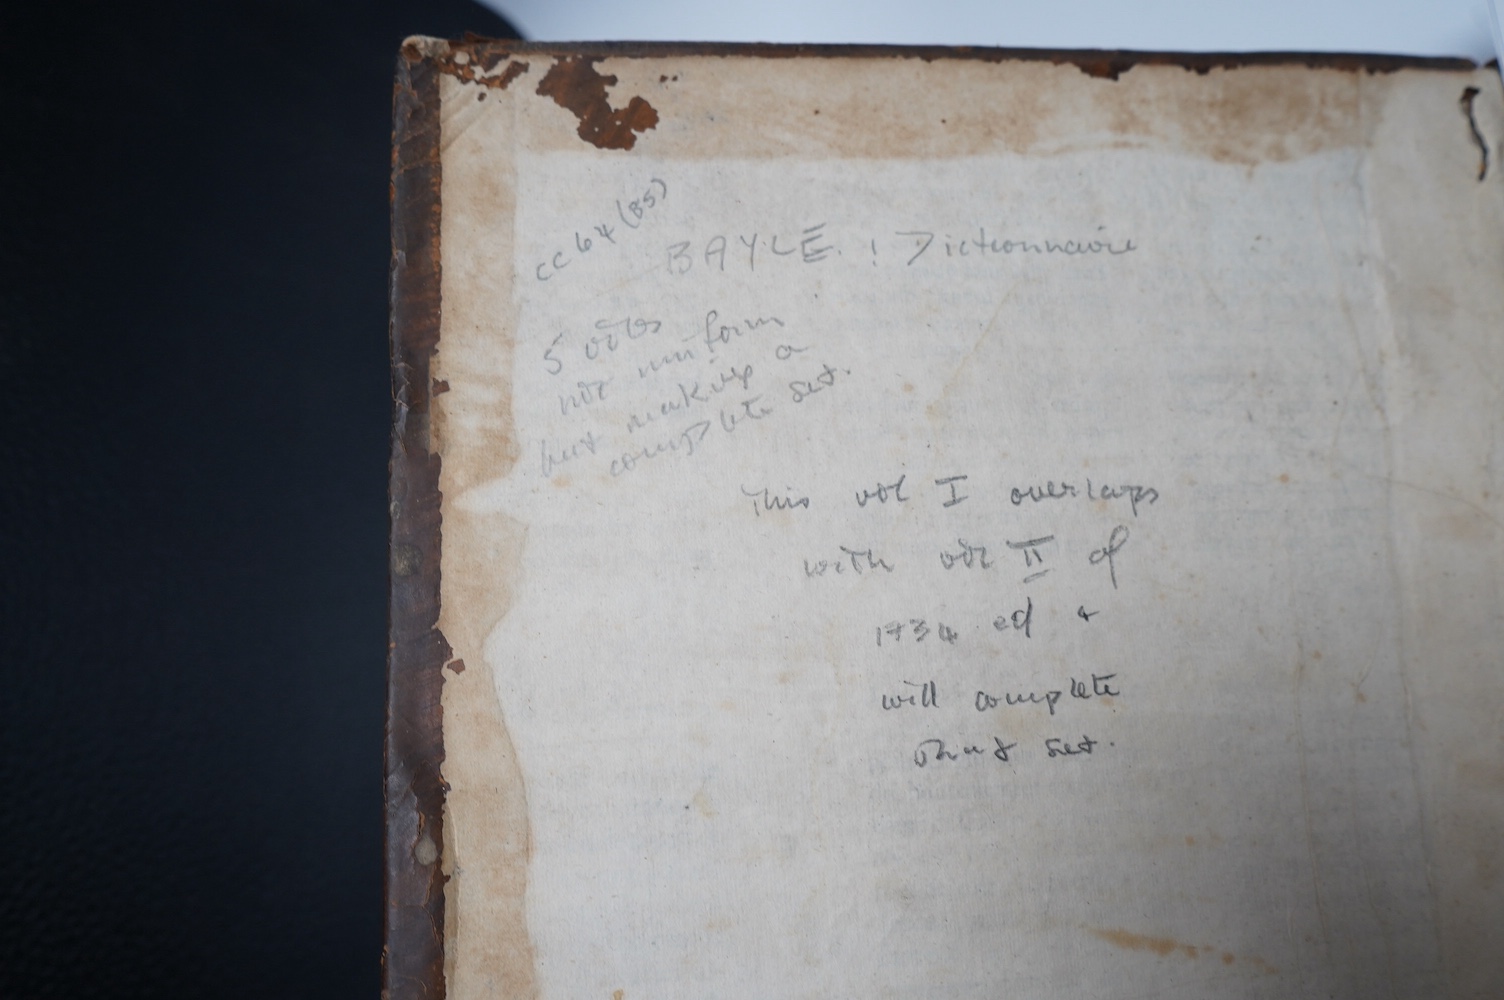 cc 64 (85)
BAYLE. : Dictionnaire
5 vols
not uniform
but making a
complete set.
This vol I overlaps
with vol II of
1734 ed &
will complete
that set.